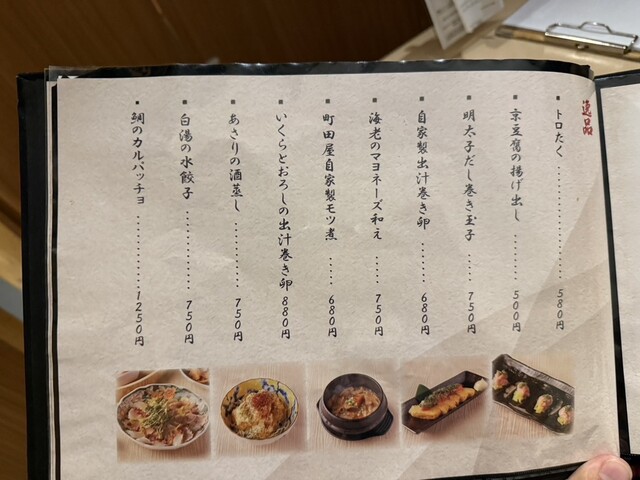 逸品
▪ トロたく ………………… 580円
▪ 京豆腐の揚げ出し ……… 500円
▪ 明太子だし巻き玉子 …… 750円
▪ 自家製出汁巻き卵 ……… 680円
▪ 海老のマヨネーズ和え …… 750円
▪ 町田屋自家製モツ煮 …… 680円
▪ いくらとおろしの出汁巻き卵 880円
▪ あさりの酒蒸し ………… 750円
▪ 白湯の水餃子 …………… 750円
▪ 鯛のカルパッチョ ……… 1250円